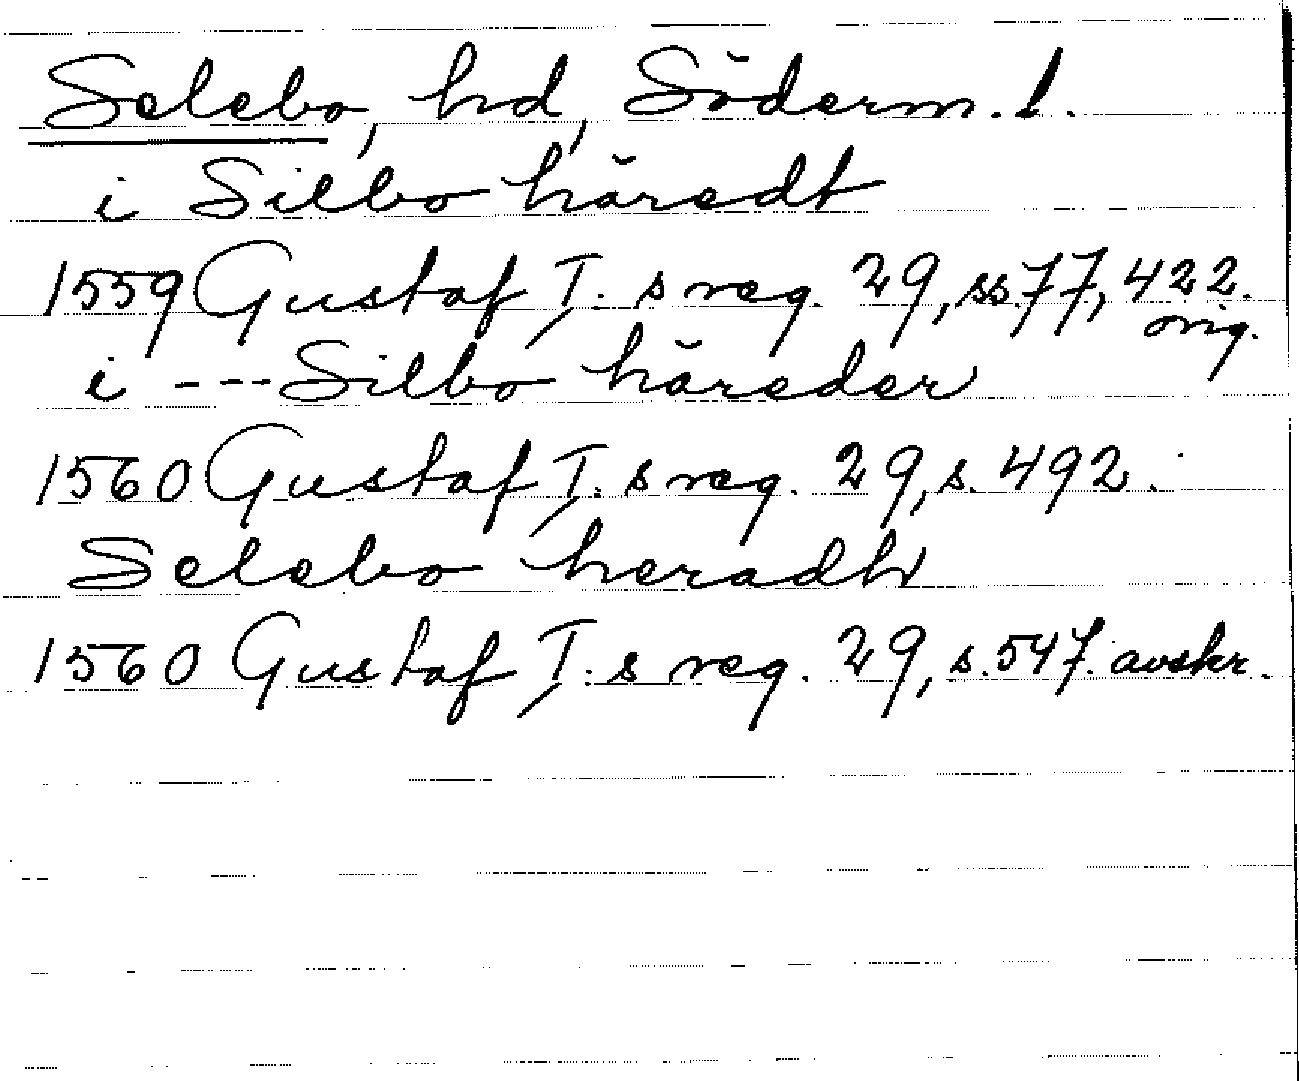 Selebo, hd, Söderm. l.
i Silbo häredt
1559 Gustaf I:s reg. 29, ss. 77, 422.
orig.
i --- Silbo häreder
1560 Gustaf I:s reg. 29, s. 492.
Selebo heradh
1560 Gustaf I:s reg. 29, s. 547. avskr.